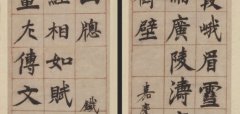 峨眉雪
廣陵濤
壁 嘉
牕 鐵
經相如賦
左傳文